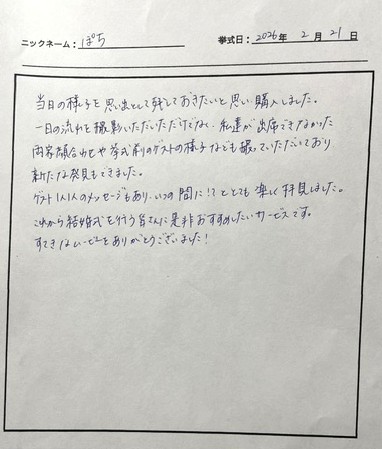 ニックネーム：ぽち 挙式日：2026年 2月 21日
当日の様子を思い出として残しておきたいと思い購入しました。
一日の流れを撮影いただいただけでなく、私達が出席できなかった
両家顔合わせや挙式前のゲストの様子なども撮っていただいており
新たな発見もできました。
ゲスト1人1人のメッセージもあり、いつの間に！？ととても楽しく拝見しました。
これから結婚式を行う皆さんに是非おすすめしたいサービスです。
すてきなムービーをありがとうございました！